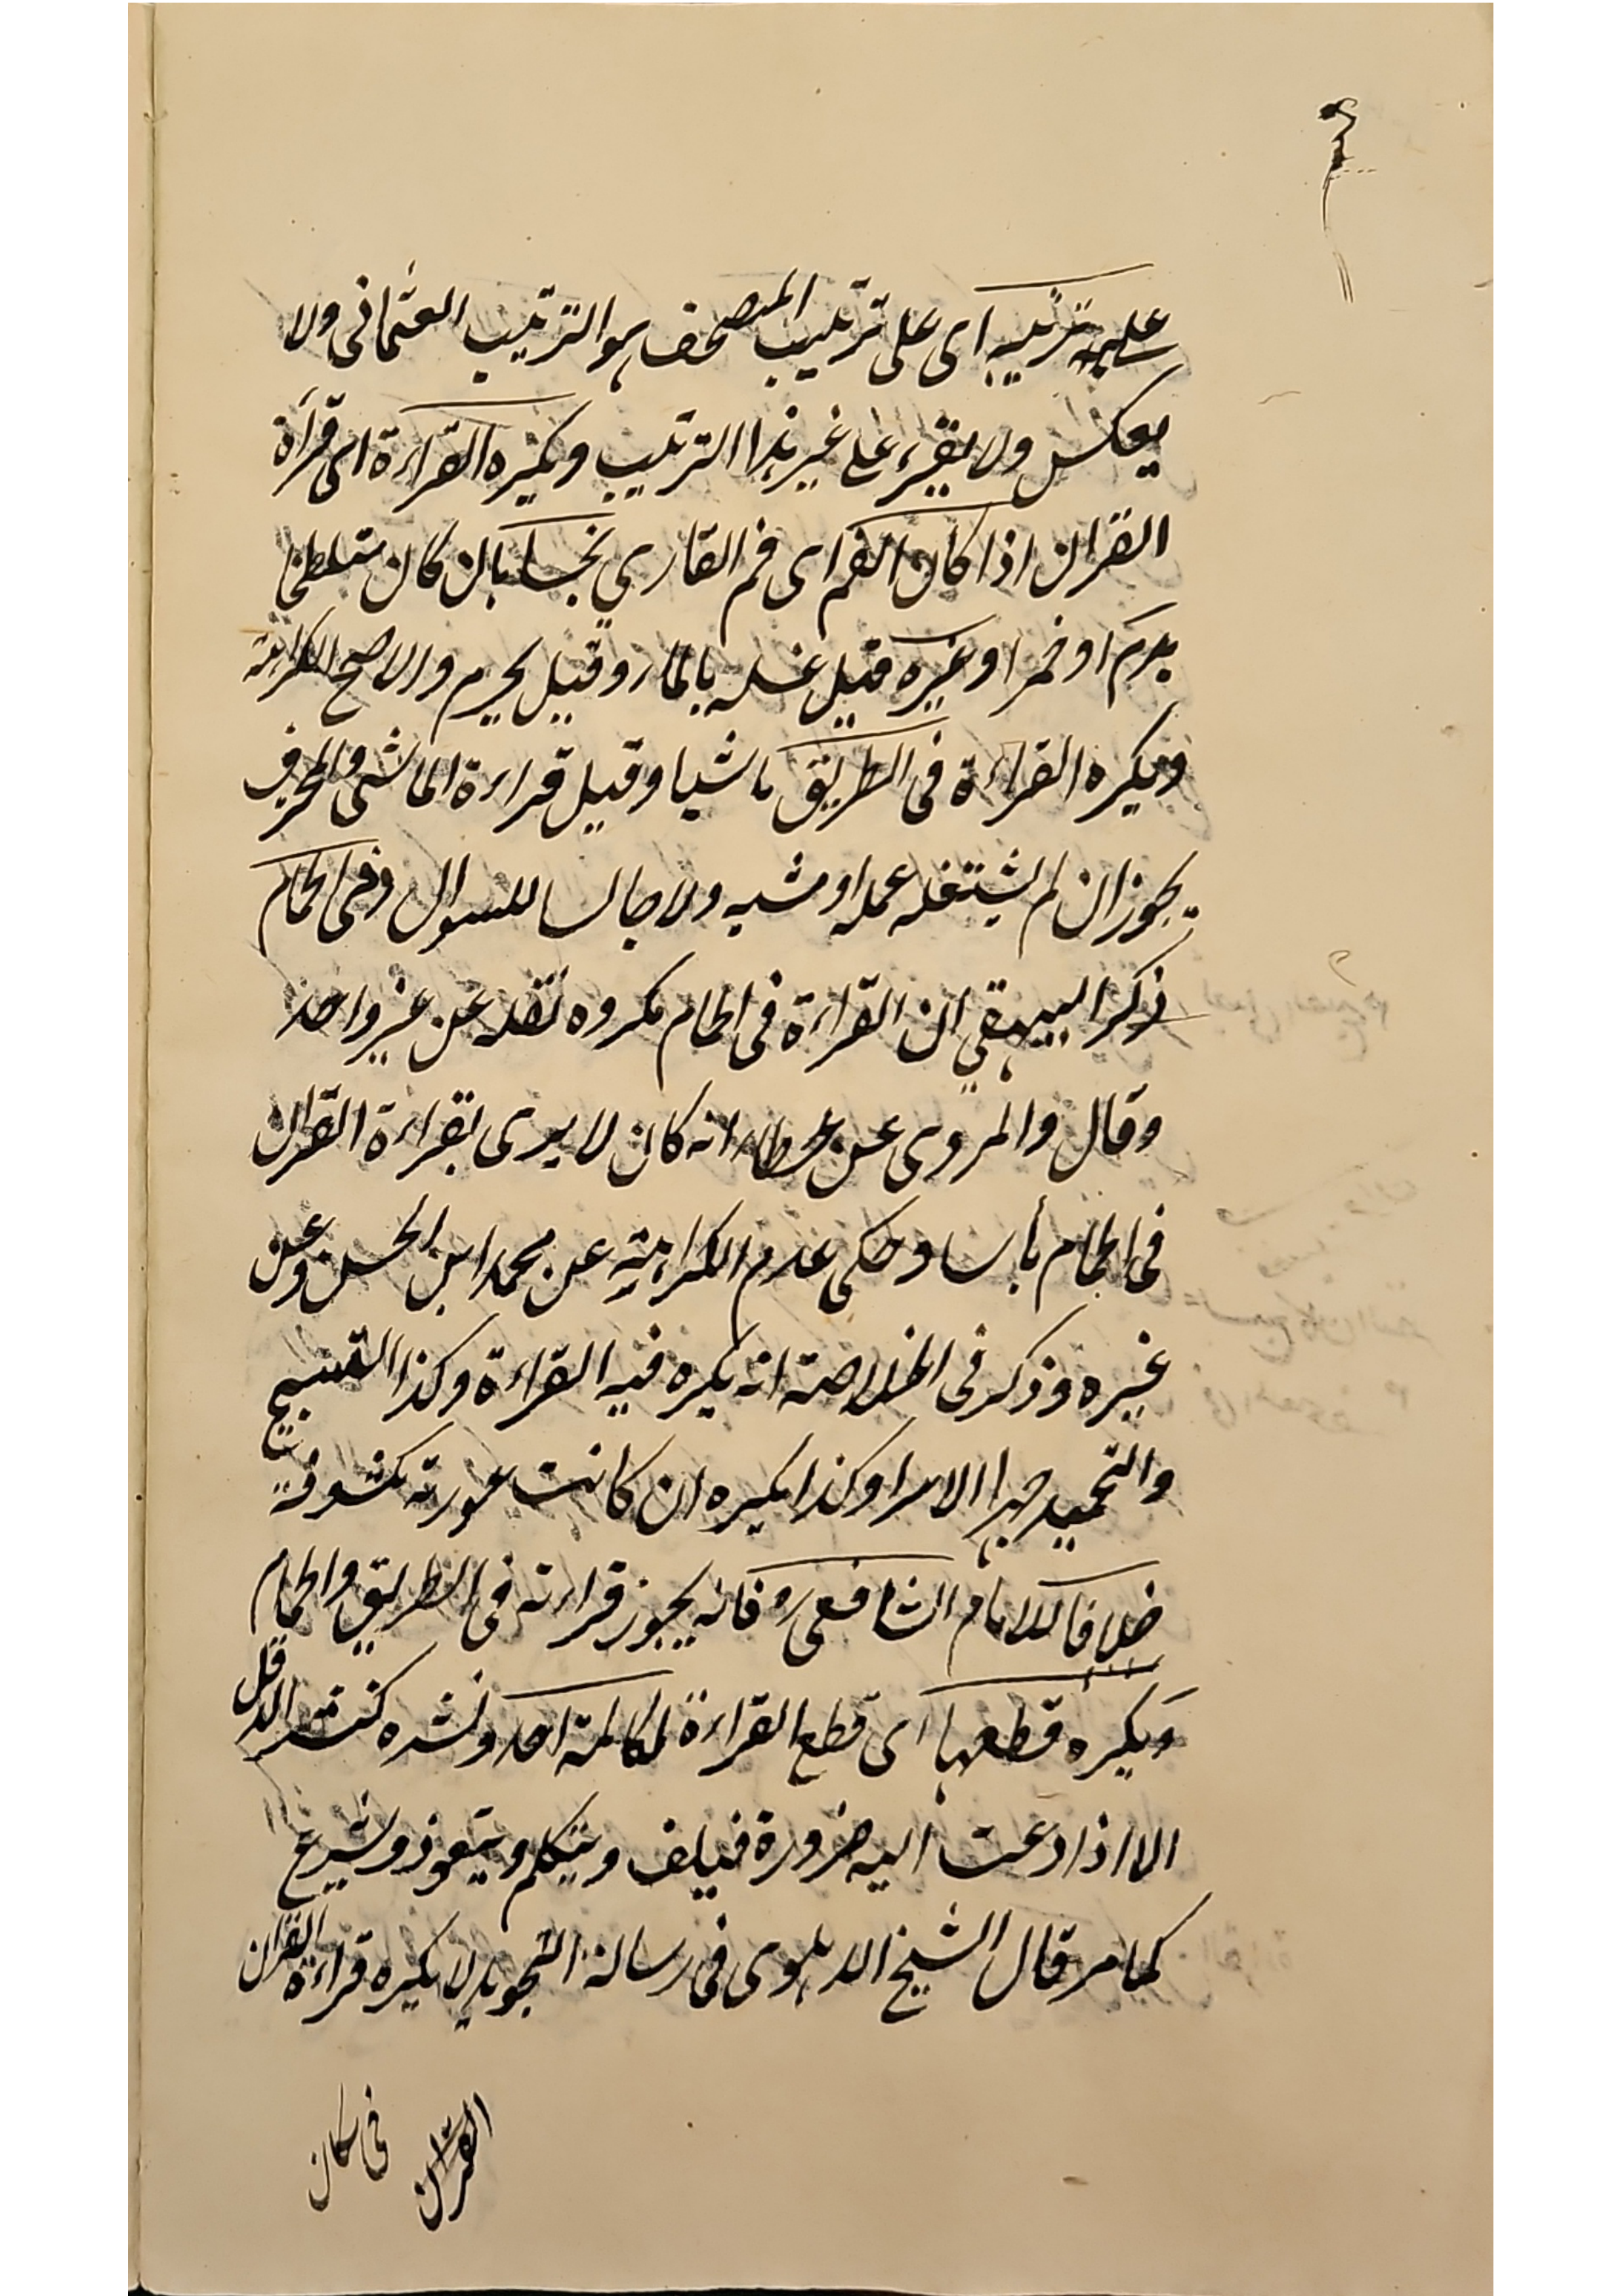 على ترتيبه اى على ترتيب المصحف هو الترتيب العثمانى ولا
يعكس ولا يقرء على غير هذا الترتيب ويكره القراءة اى قرأة
القران اذا كان الفم اى فم القاري نجسا بان كان متلطخا
بدم او خمر او غيره قيل غسله بالماء وقيل يحرم والاصح الكراهة
ويكره القراءة فى الطريق ماشيا وقيل قراءة الماشى والمحترف
يجوز ان لم يشتغله عمله او مشيه ولا جالسا للسوال وفى الحمام
ذكر البيهقي ان القراءة فى الحمام مكروه نقله عن غير واحد
وقال والمروى عن عطاء انه كان لا يرى بقراءة القران
فى الحمام بأسا وحكى عدم الكراهية عن محمد ابن الحسن وعن
غيره وذكر فى الخلاصة انه يكره فيه القراءة وكذا التسبيح
والتحميد جهرا الا سرا وكذا يكره ان كانت عورته مكشوفة
خلافا للامام الشافعى رو فانه يجوز قراءته فى الطريق والحمام
ويكره قطعها اى قطع القراءة لمكالمة احد ونشره كنثر الدقل
الا اذا دعت اليه ضرورة فيقف ويتكلم ويتعوذ ويشرع
كما مر قال الشيخ الدهلوى فى رسالة التجويد لا يكره قراءة القران
فى مكان